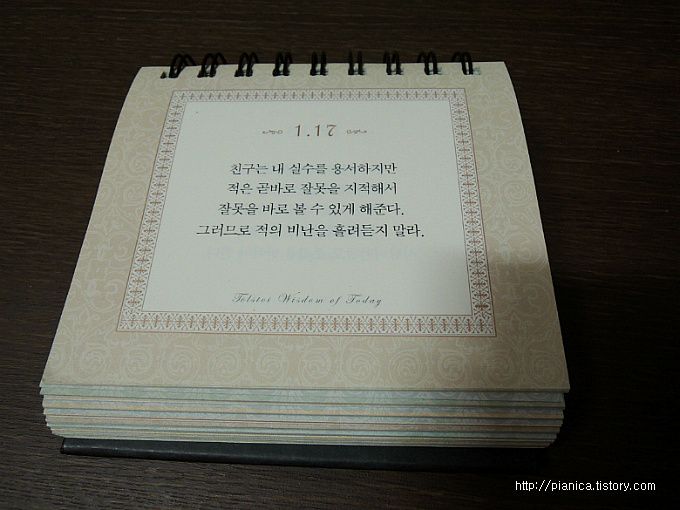 1.17
친구는 내 실수를 용서하지만
적은 곧바로 잘못을 지적해서
잘못을 바로 볼 수 있게 해준다.
그러므로 적의 비난을 흘려듣지 말라.
Tolstoi Wisdom of Today
http://pianica.tistory.com